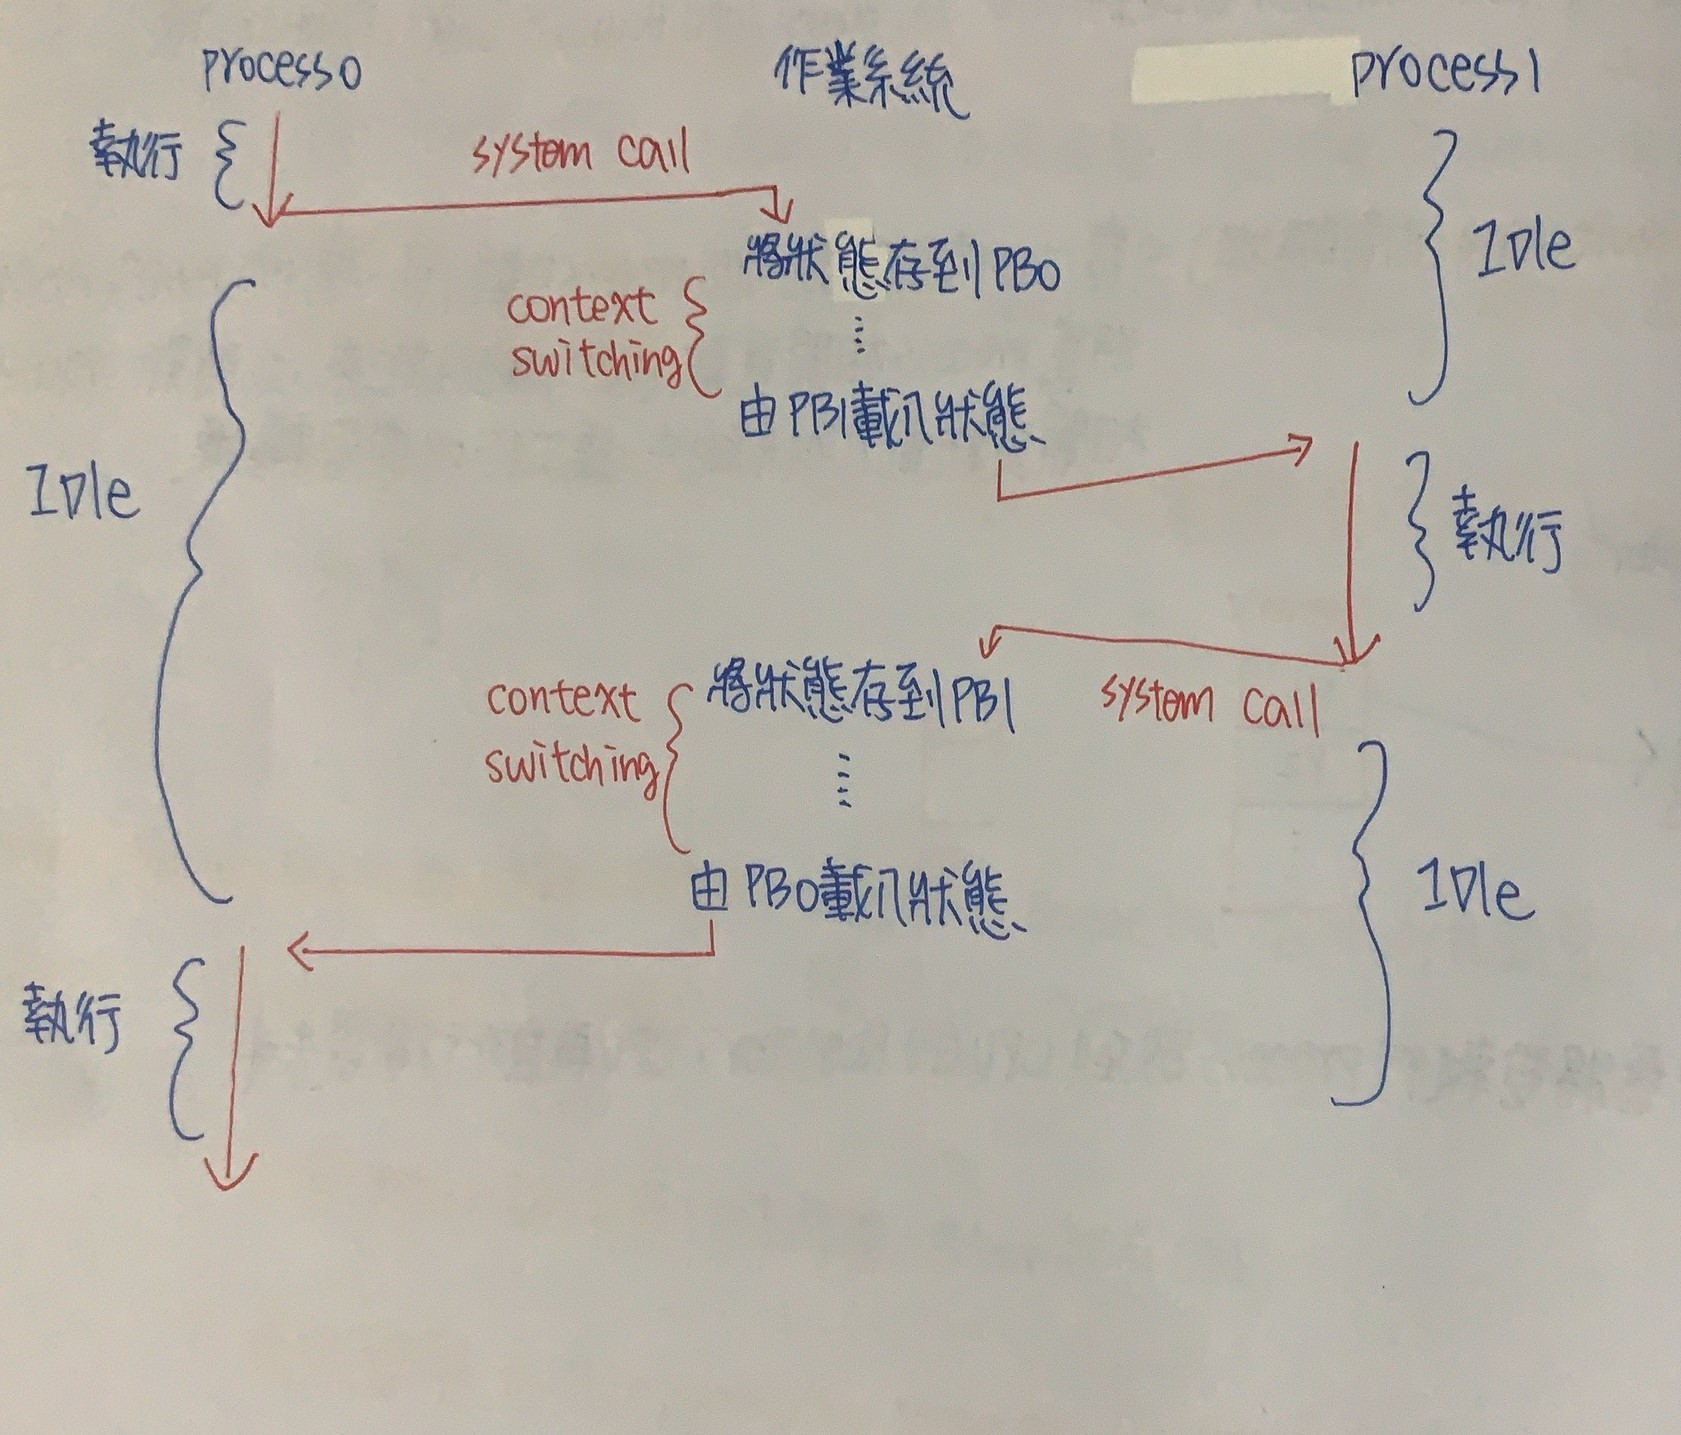 process0
作業系統
process1
執行
system call
將狀態存到PB0
Idle
context
switching
由PB1載入狀態
Idle
執行
將狀態存到PB1
system call
context
switching
由PB0載入狀態
Idle
執行